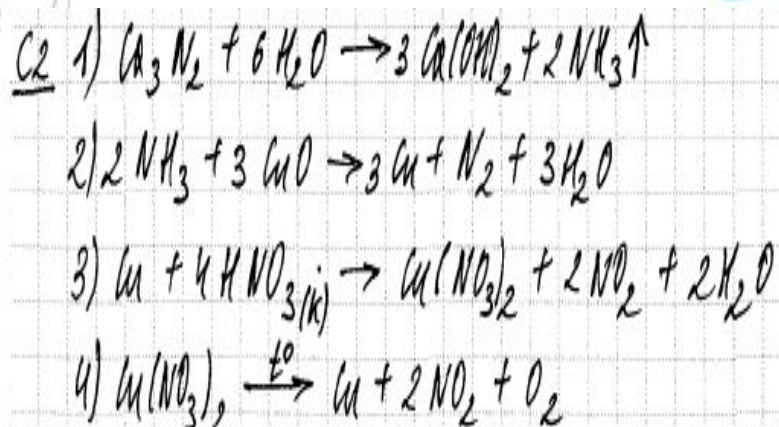 C2 1) Ca₃N₂ + 6H₂O → 3Ca(OH)₂ + 2NH₃↑
2) 2NH₃ + 3CuO → 3Cu + N₂ + 3H₂O
3) Cu + 4HNO₃(к) → Cu(NO₃)₂ + 2NO₂ + 2H₂O
4) Cu(NO₃)₂ t° → Cu + 2NO₂ + O₂